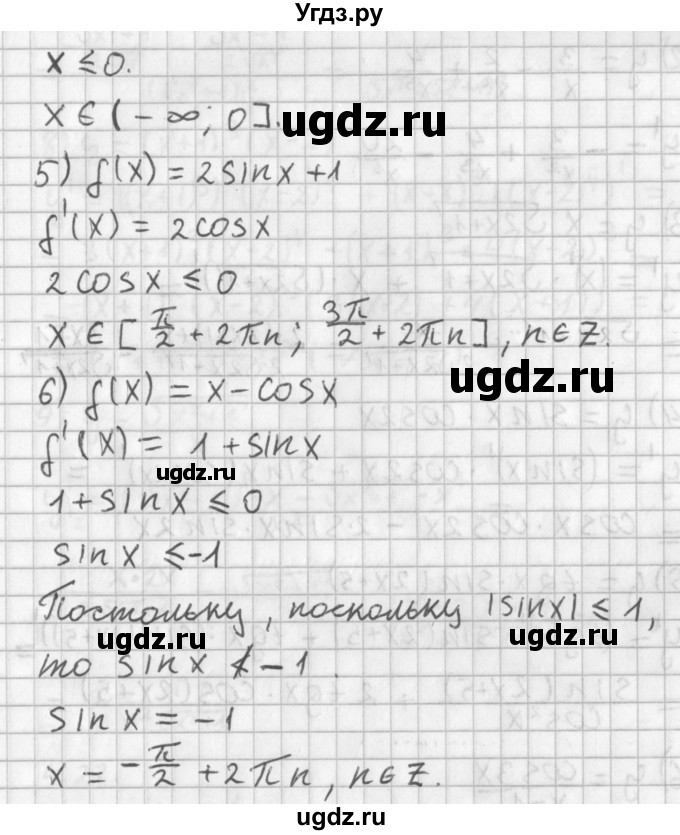 Угдз.ру
x ≤ 0.
x ∈ (-∞; 0].
ugdz.ru
5) f(x) = 2sinx+1
f'(x) = 2cosx
2cosx ≤ 0
x ∈ [π/2 + 2πn; 3π/2 + 2πn], n∈Z.
ugdz.ru
6) f(x) = x - cosx
f'(x) = 1+sinx
ugdz.ru
1+sinx ≤ 0
sinx ≤ -1
Постольку, поскольку |sinx| ≤ 1,
ugdz.ru
ugdz.ru
то sinx ≮ -1.
ugdz.ru
sinx = -1
x = -π/2 + 2πn, n∈Z.
ugdz.ru